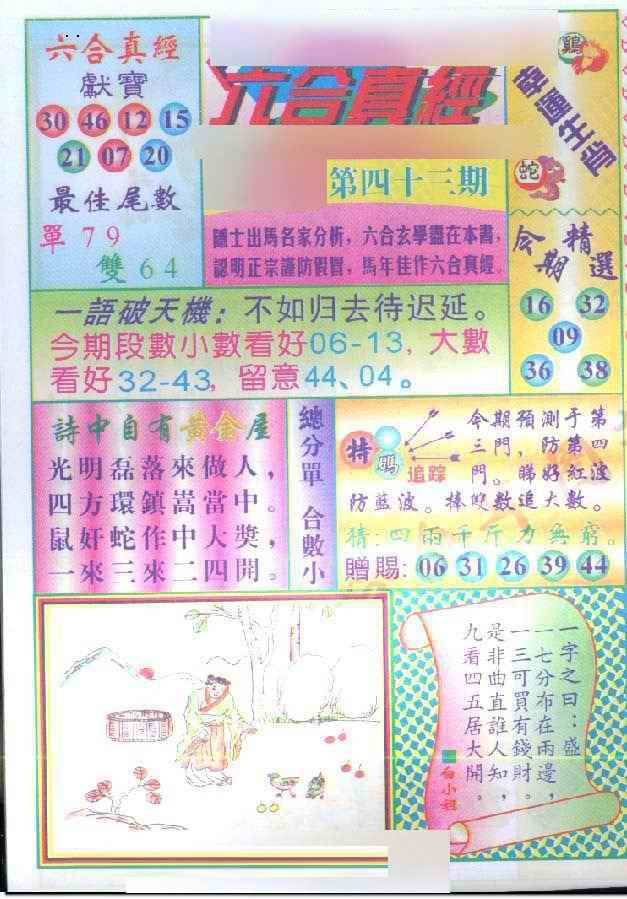 六合真經
獻寶
30 46 12 15
21 07 20
最佳尾數
單 7 9
雙 6 4
六合真經
第四十三期
隱士出馬名家分析，六合玄學盡在本書，
認明正宗謹防假冒，馬年佳作六合真經。
雞
蛇
今期精選
16 32
09
36 38
一語破天機：不如归去待迟延。
今期段數小數看好06-13，大數
看好32-43，留意44、04。
詩中自有黃金屋
光明磊落來做人，
四方環鎮嵩當中。
鼠奸蛇作中大獎，
一來三來二四開。
總分單 合數小
特碼
追踪
今期預測于第
三門，防第四
門。睇好紅波
防藍波。捧雙數追大數。
猜:四兩千斤力無窮。
贈賜: 06 31 26 39 44
一字之曰：盛
一七分布在兩邊，
一三可買有錢財。
是非曲直誰人知，
九看四五居大開。
白小姐